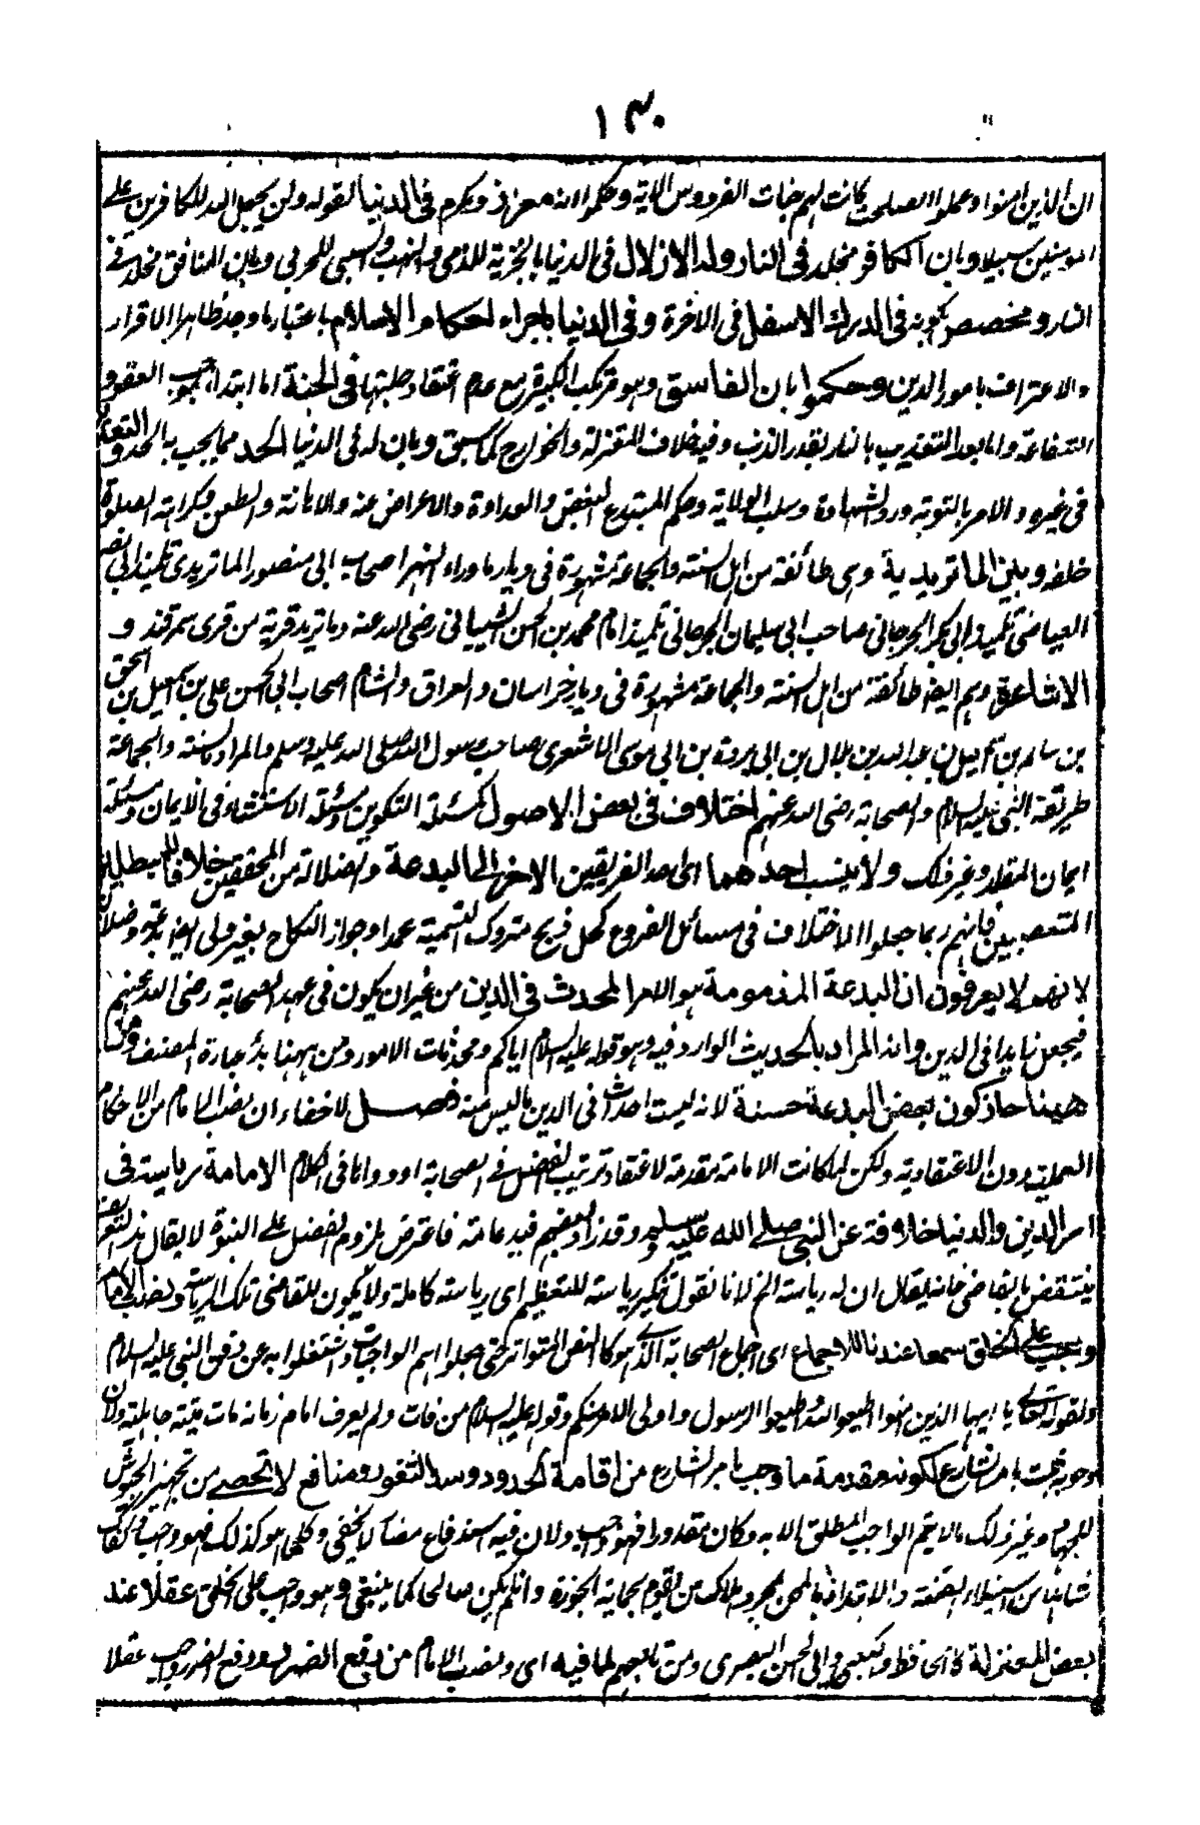 ١٣٠
ان الذين امنوا وعملوا الصلحت كانت لهم جنات الفردوس الاية وحكموا بانه معزز ومكرم فى الدنيا لقوله ولن يجعل الله للكافرين على
المومنين سبيلا وبان الكافر مخلد فى النار وله الاذلال فى الدنيا بالجزية للذمى والنهب والسبى للحربى وبان المنافق مخلد فى
النار ومخصص بكونه فى الدرك الاسفل فى الاخرة وفى الدنيا باجراء احكام الاسلام باعتبار ما وجد ظاهرا الاقرار
والاعتراف بامور الدين وحكموا بان الفاسق وهو مرتكب الكبيرة مع عدم اعتقاد حليتها فى الجنة اما ابتداء بموجب العفو و
الشفاعة واما بعد التعذيب بالنار بقدر الذنب وفيه خلاف المعتزلة والخوارج كما سبق وبان له فى الدنيا الحد مما يجب بالحد والتعزير
فى غيره والامر بالتوبة ورد الشهادة وسلب الولاية وحكم المبتدع البغض والعداوة والاعراض عنه والاهانة والطعن وكراهة الصلوة
خلفه وبين الماتريدية وهى طائفة من اهل السنة والجماعة مشهورة فى ديار ماوراء النهر اصحاب ابى منصور الماتريدى تلميذ ابى نصر
العياضى تلميذ ابى بكر الجرجانى صاحب ابى سليمان الجرجانى تلميذ امام محمد بن الحسن الشيبانى رضى الله عنه وماتريد قرية من قرى سمرقند و
الاشاعرة وهم ايضا طائفة من اهل السنة والجماعة مشهورة فى ديار خراسان والعراق والشام اصحاب ابى الحسن على بن اسمعيل بن اسحق
بن سالم بن اسمعيل بن عبد الله بن بلال بن ابى بردة بن ابى موسى الاشعرى صاحب رسول الله صلى الله عليه وسلم والمراد بالسنة والجماعة
طريقة النبى عليه السلام والصحابة رضى الله عنهم اختلاف فى بعض الاصول كمسئلة التكوين ومسئلة الاستثناء فى الايمان ومسئلة
ايمان المقلد وغير ذلك ولا ينسب احدهما اى احد الفريقين الاخر الى البدعة والضلالة من المحققين خلافا للمبطلين
المتعصبين فانهم ربما جعلوا الاختلاف فى مسائل الفروع كحل ذبح متروك التسمية عمدا وجواز النكاح بغير ولى ايضا بدعة وضلالا
لانهم لا يعرفون ان البدعة المذمومة هو الامر المحدث فى الدين من غير ان يكون فى عهد الصحابة رضى الله عنهم
فيجعل زايدا فى الدين وانه المراد بالحديث الوارد فيه وهو قوله عليه السلام اياكم ومحدثات الامور ومن ههنا بدأ عبارة المصنف ومن
ههنا جاز كون بعض البدعة حسنة لانه ليست احداث فى الدين ما ليس منه فصل لا خفاء ان نصب الامام من الاحكام
العملية دون الاعتقادية ولكن لما كانت الامامة مقدمة لاعتقاد ترتيب الفضل فى الصحابة اوردوها فى الكلام الامامة رياسة فى
امر الدين والدنيا خلافة عن النبى صلى الله عليه وسلم وقد زاد بعضهم قيد عامة فاعترض بلزوم الفضل على النبوة لا يقال هذا التعريف
ينتقض بالقاضى فانه يقال ان له رياسة الخ لانا نقول تنكير رياسة للتعظيم اى رياسة كاملة ولا يكون للقاضى تلك الرياسة ونصب الامام
وجب على الخلق سمعا عندنا للاجماع اى اجماع الصحابة الذى هو كالنص المتواتر حتى جعلوا اهم الواجبات واشتغلوا به عن دفن النبى عليه السلام
ولقوله تعالى يا ايها الذين امنوا اطيعوا الله واطيعوا الرسول واولى الامر منكم وقوله عليه السلام من مات ولم يعرف امام زمانه مات ميتة جاهلية ولان
وجوبه ثبت بامر الشارع لكونه مقدمة ما وجب بامر الشارع من اقامة الحدود وسد الثغور ومنافع لا تحصى من تجهيز الجيوش
للجهاد وغير ذلك مما لا يتم الواجب المطلق الا به وكان مقدورا فهو واجب ولان فيه استدفاع مضار لا يخفى وكلما هو كذلك فهو واجب
من استيلاء الفتنة والابتداء بالمحن لمجرد هلاك من يقوم بحماية الحوزة وان لم يكن صالحا كما ينبغى وهو واجب على الخلق عقلا عند
بعض المعتزلة كالجاحظ والكعبى وابى الحسن البصرى ومن تابعهم لما فيه اى ونصب الامام من دفع الضرر ودفع الضرر واجب عقلا